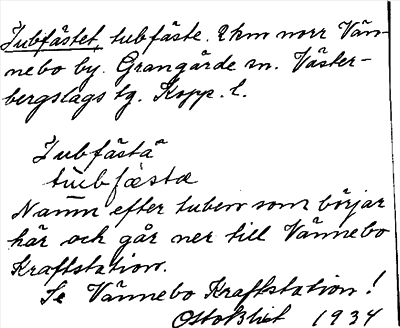 Tubfästet, tubfäste. 2 km norr Vän-
nebo by. Grangärde sn. Väster-
bergslags tg. Kopp. l.
Tubfästä
tubfästa
Namn efter tuben som börjar
här och går ner till Vännebo
Kraftstation.
Se Vännebo Kraftstation!
1934